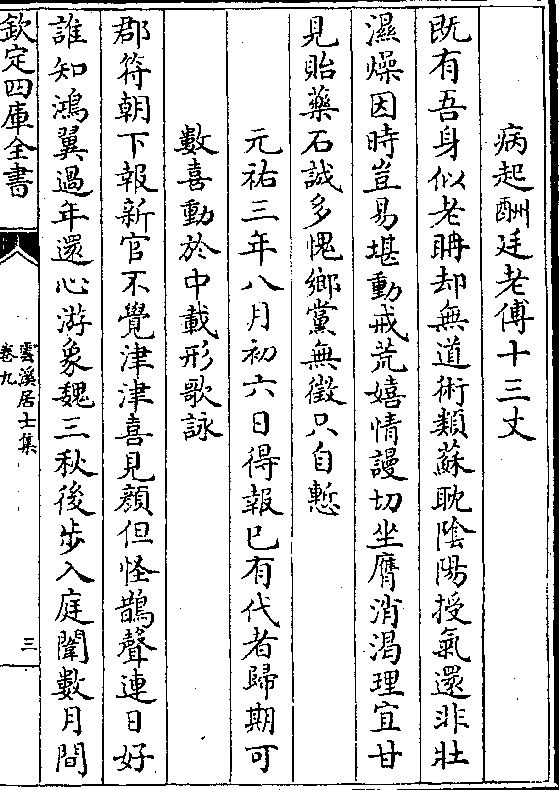 病起酬廷老傅十三丈
既有吾身似老聃却無道術類蘇耽陰陽授氣還非壯
濕燥因時豈易堪動戒荒嬉情謾切坐膺消渴理宜甘
見貽藥石誠多愧鄉黨無徵只自慙
元祐三年八月初六日得報已有代者歸期可
數喜動於中載形歌詠
郡符朝下報新官不覺津津喜見顔但怪鵲聲連日好
誰知鴻翼過年還心游象魏三秋後步入庭闈數月間
欽定四庫全書
雲溪居士集
卷九
三